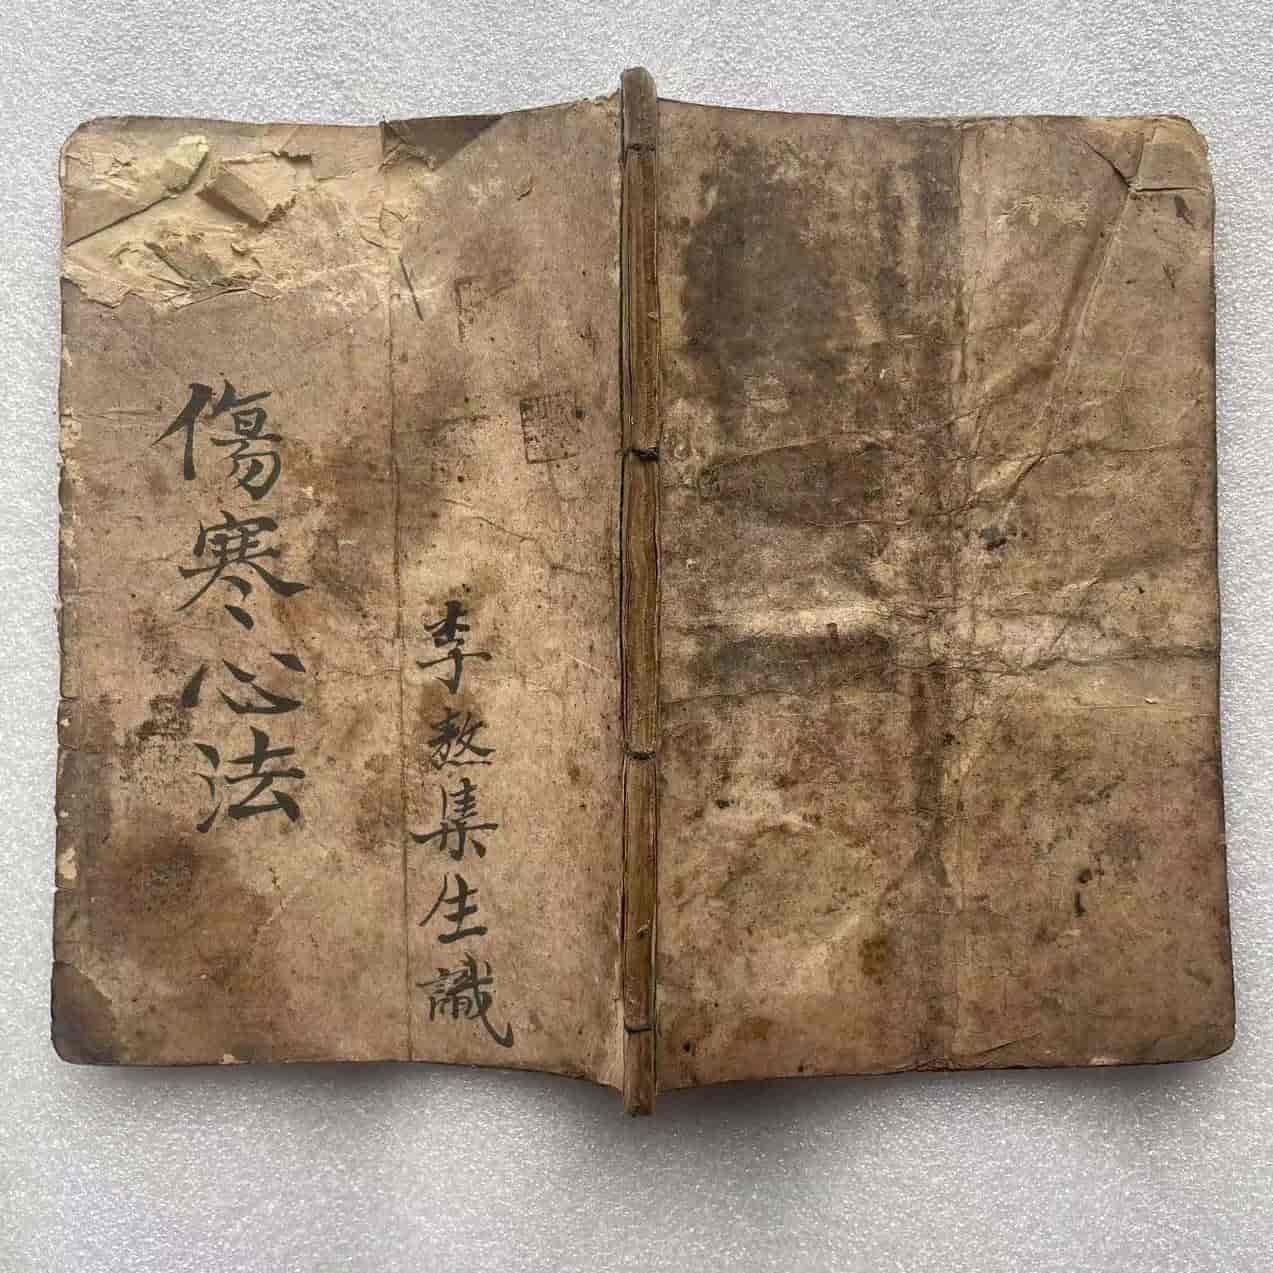 傷寒心法
李熬集生識